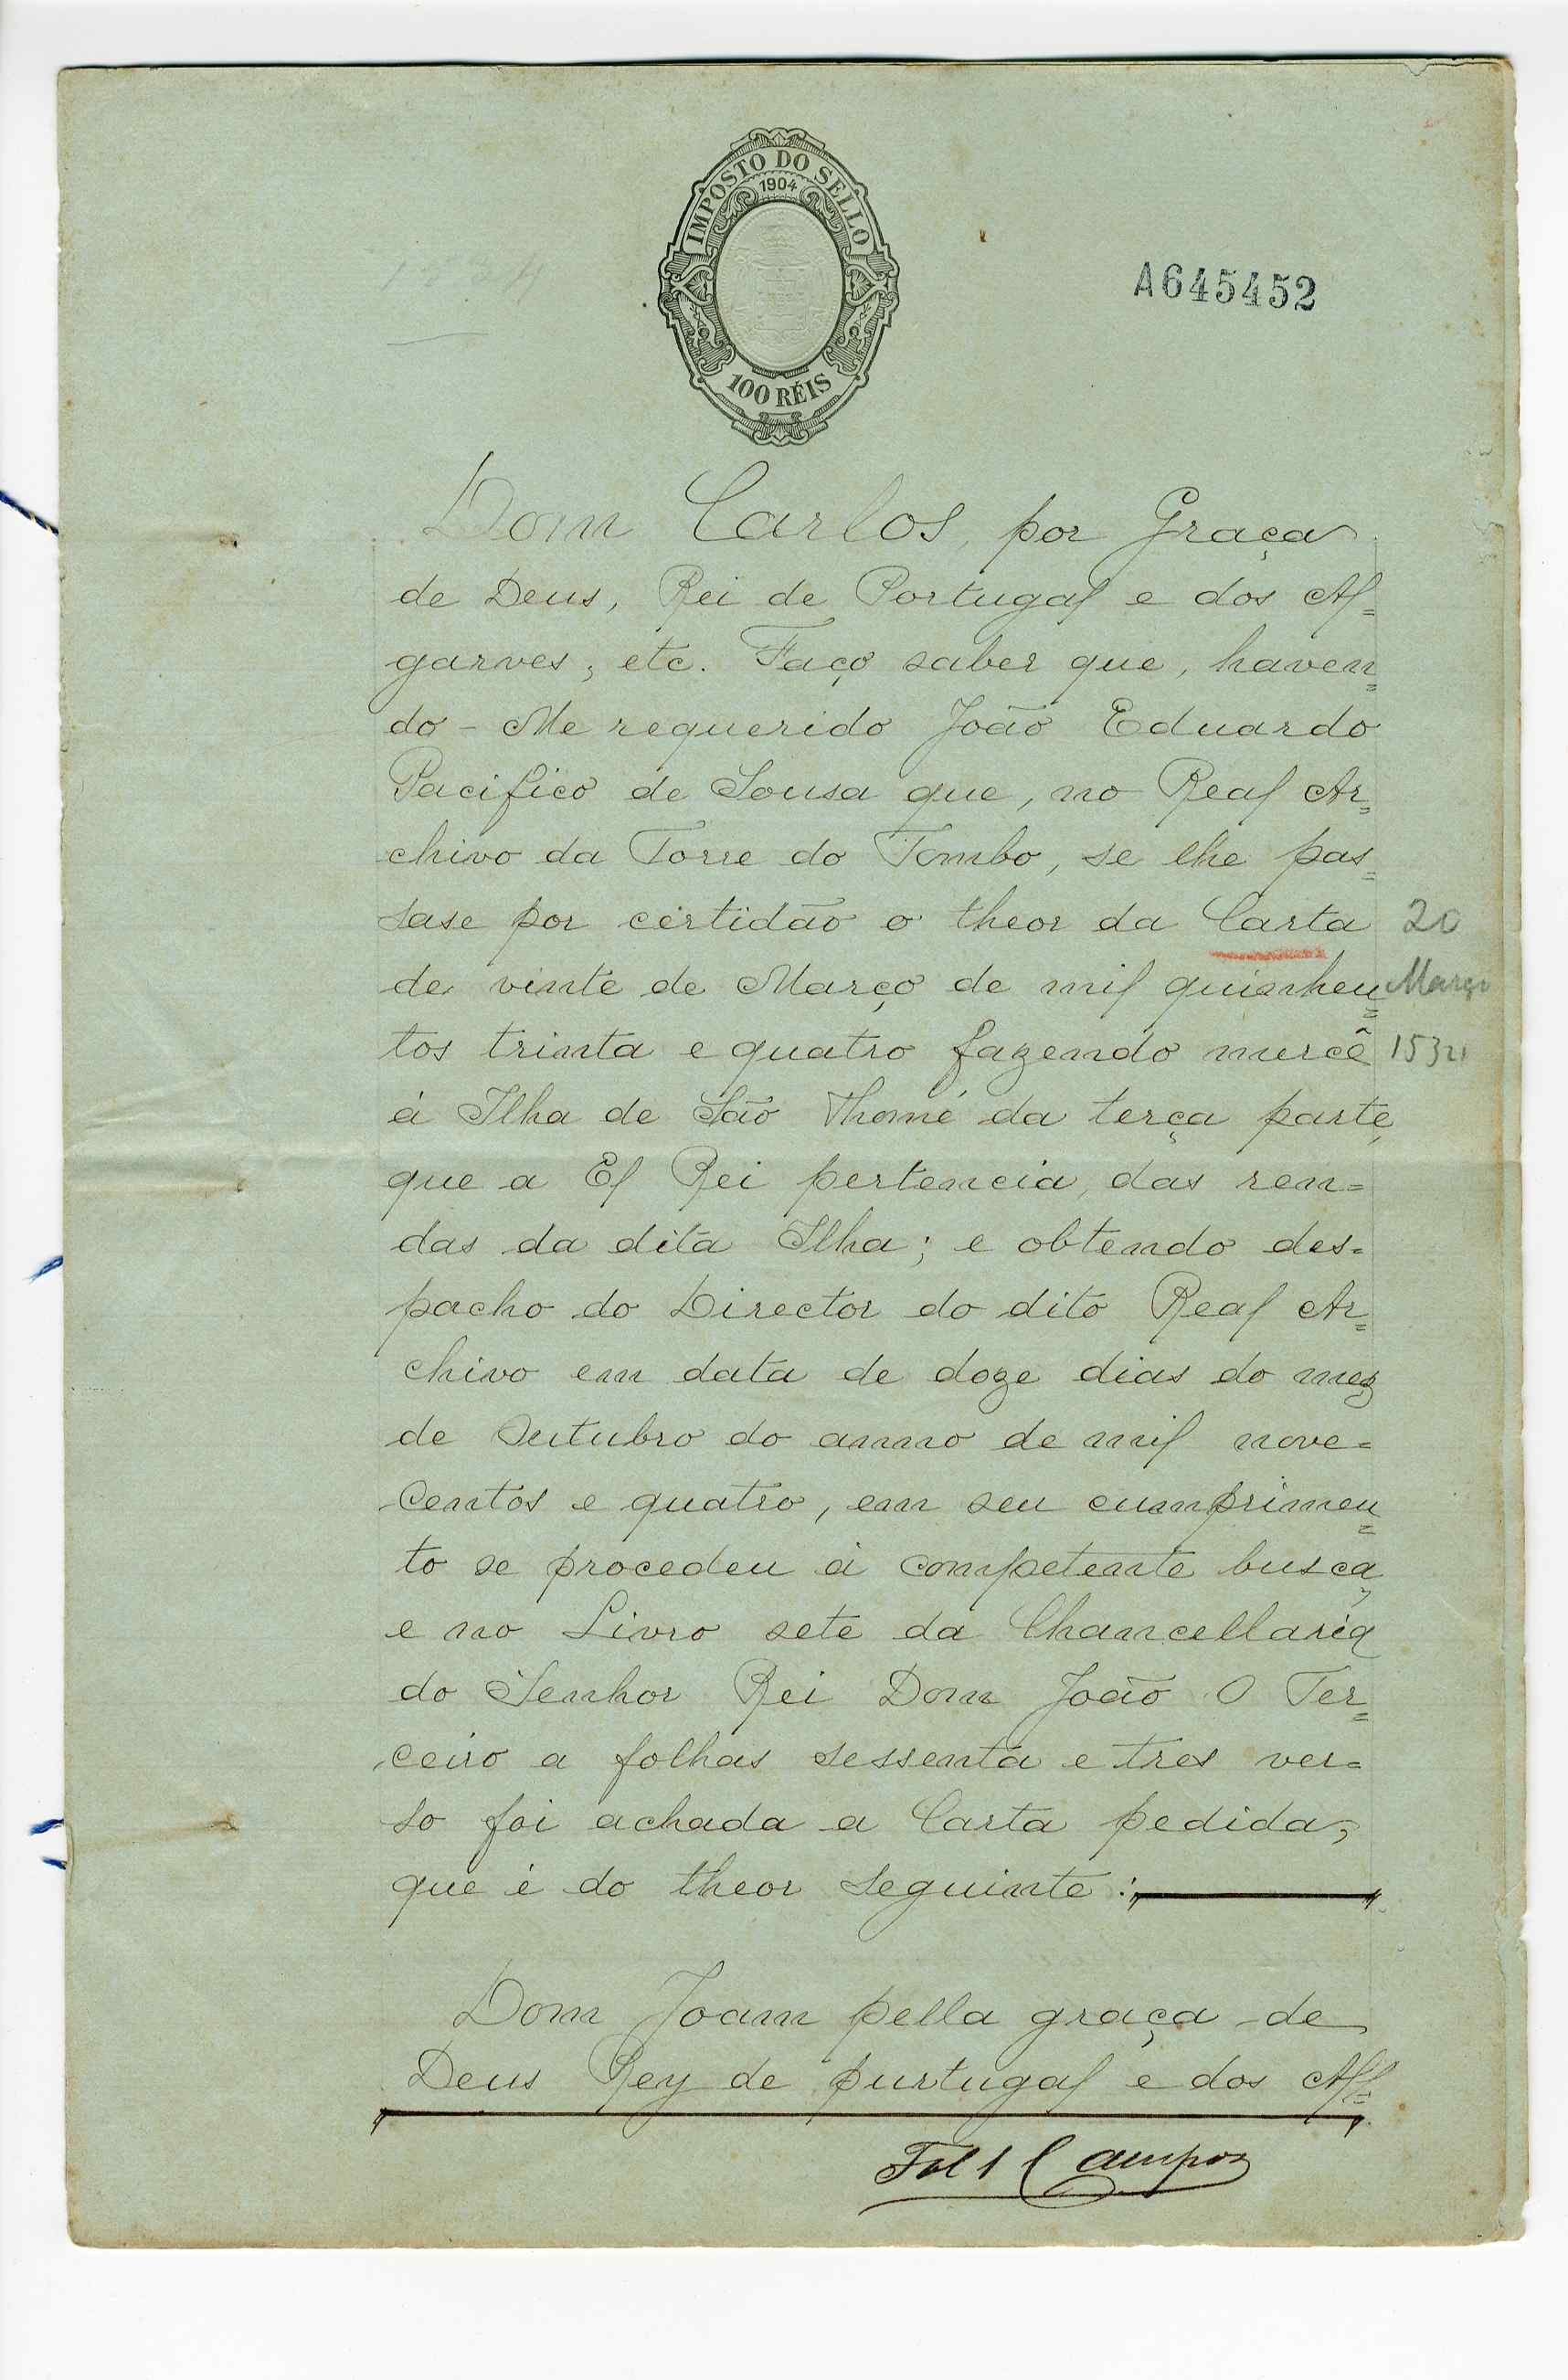 IMPOSTO DO SELLO
1904
100 RÉIS
A645452
Dom Carlos, por Graça
de Deus, Rei de Portugal e dos Al=
garves, etc. Faço saber que, haven=
do-Me requerido João Eduardo
Pacifico de Sousa que, no Real Ar=
chivo da Torre do Tombo, se lhe pas=
sase por certidão o theor da Carta
20
de vinte de Março de mil quinhen=
Março
tos trinta e quatro fazendo mercê
1534
á Ilha de São Thomé da terça parte,
que a El Rei pertencia, das ren=
das da dita Ilha; e obtendo des=
pacho do Director do dito Real Ar=
chivo em data de doze dias do mez
de Outubro do anno de mil nove=
centos e quatro, em seu cumprimen=
to se procedeu á competente busca,
e no Livro sete da Chancellaria
do Senhor Rei Dom João O Ter=
ceiro a folhas sessenta e tres ver=
so foi achada a Carta pedida,
que é do theor seguinte:
Dom Joam pella graça de
Deus Rey de purtugal e dos All=
Fol 1 Campos